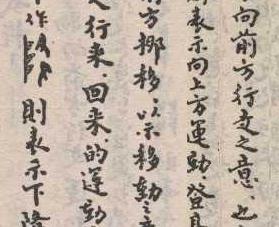 向前方行走之意、也
表示向上方運動、登
前方挪移、以示移動之意
行来、回来、的運動
作 則表示下降